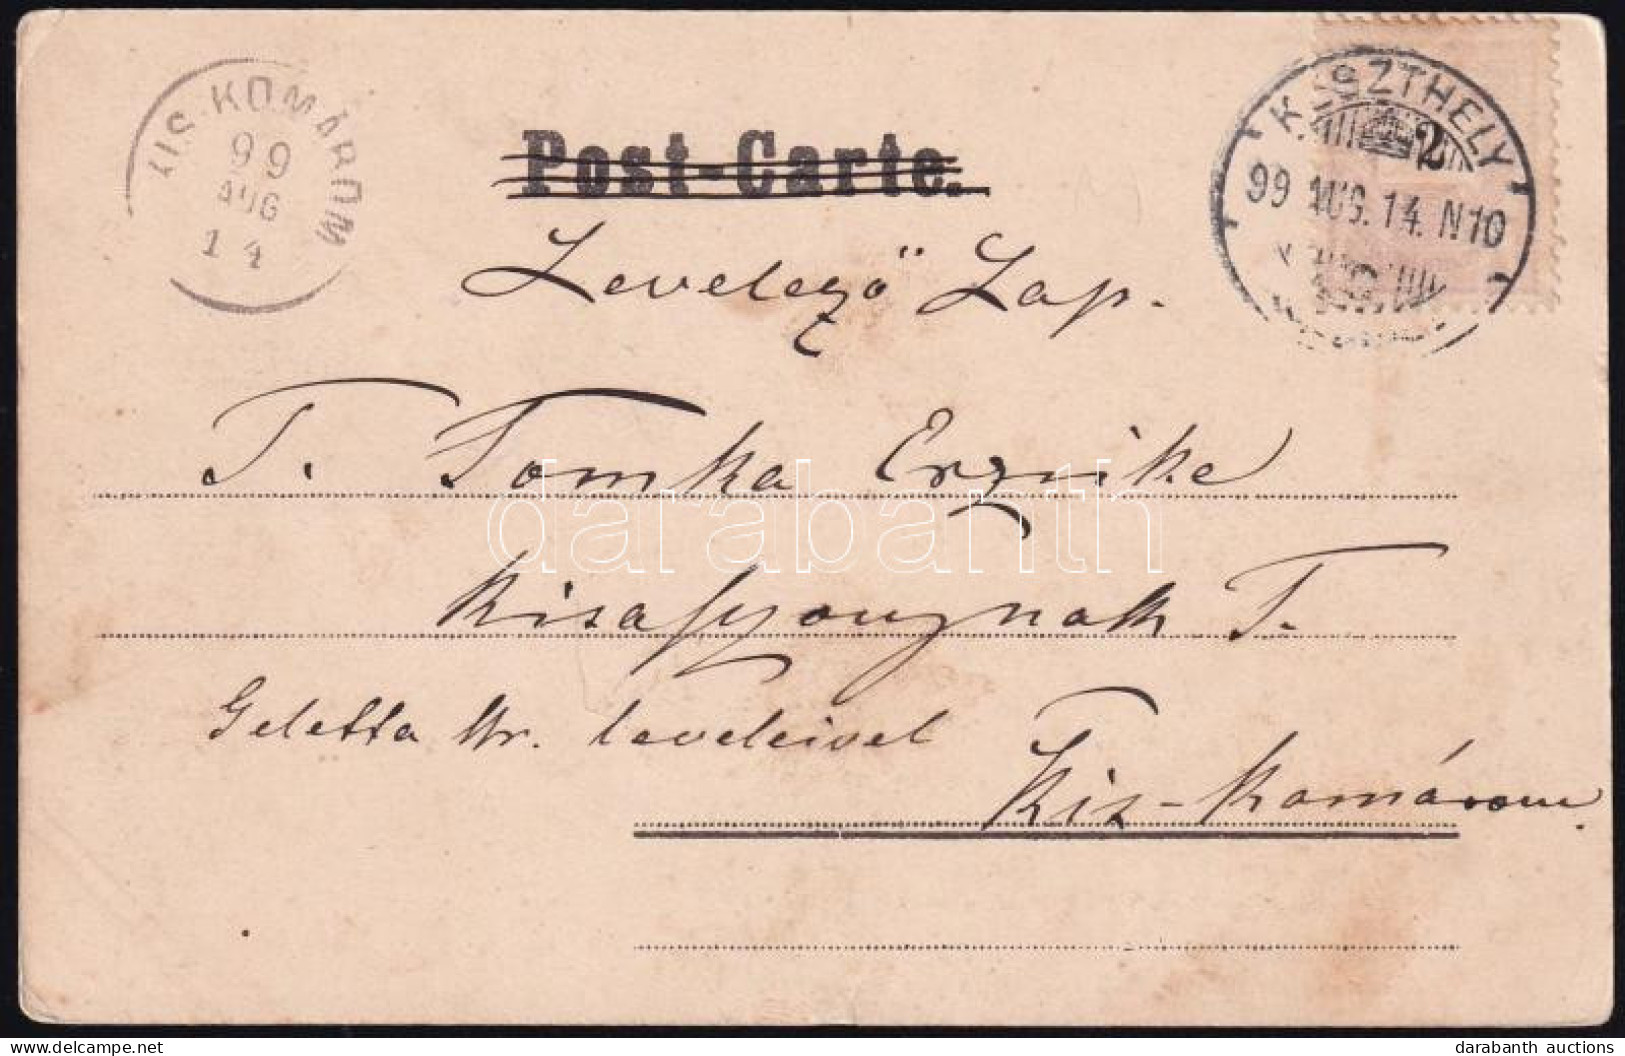 KIS-KOMÁROM
99
AUG
14
KESZTHELY
2
99 AUG. 14. N10
Post-Carte.
Levelező Lap.
T. Tomka Erzsike
kisasszonynak T.
Geletta Ur. leveleivel
Kis-Komárom.
darabanth
© darabanth auctions
www.darabanth.com